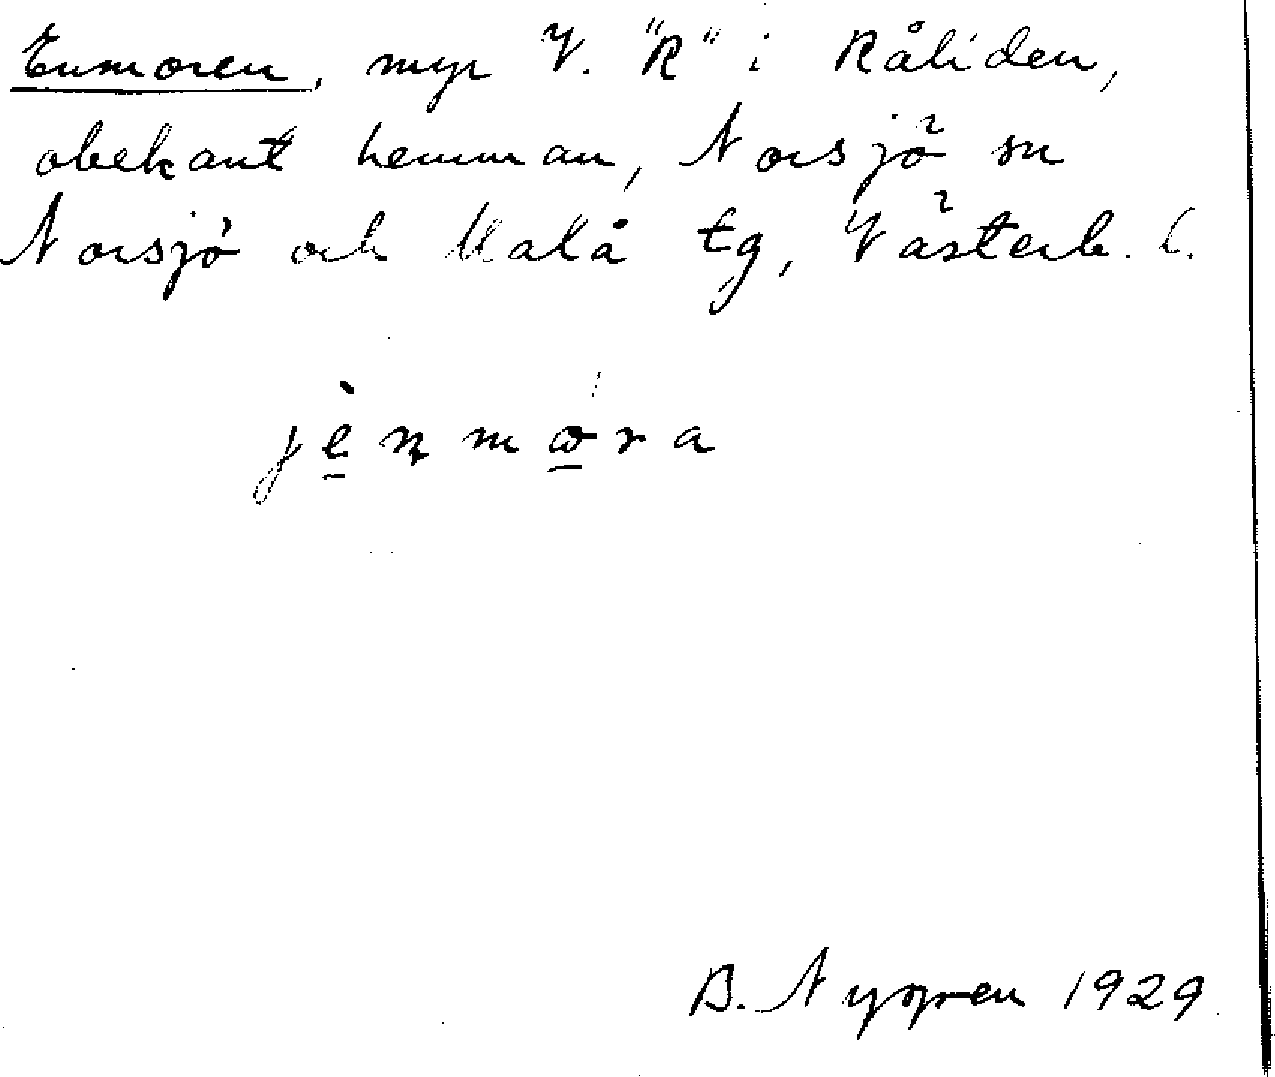 Enmoren, myr V. "R" i Råliden,
obekant hemman, Norsjö sn
Norsjö och Malå tg, Västerb. l.
jènmora
B. Nygren 1929